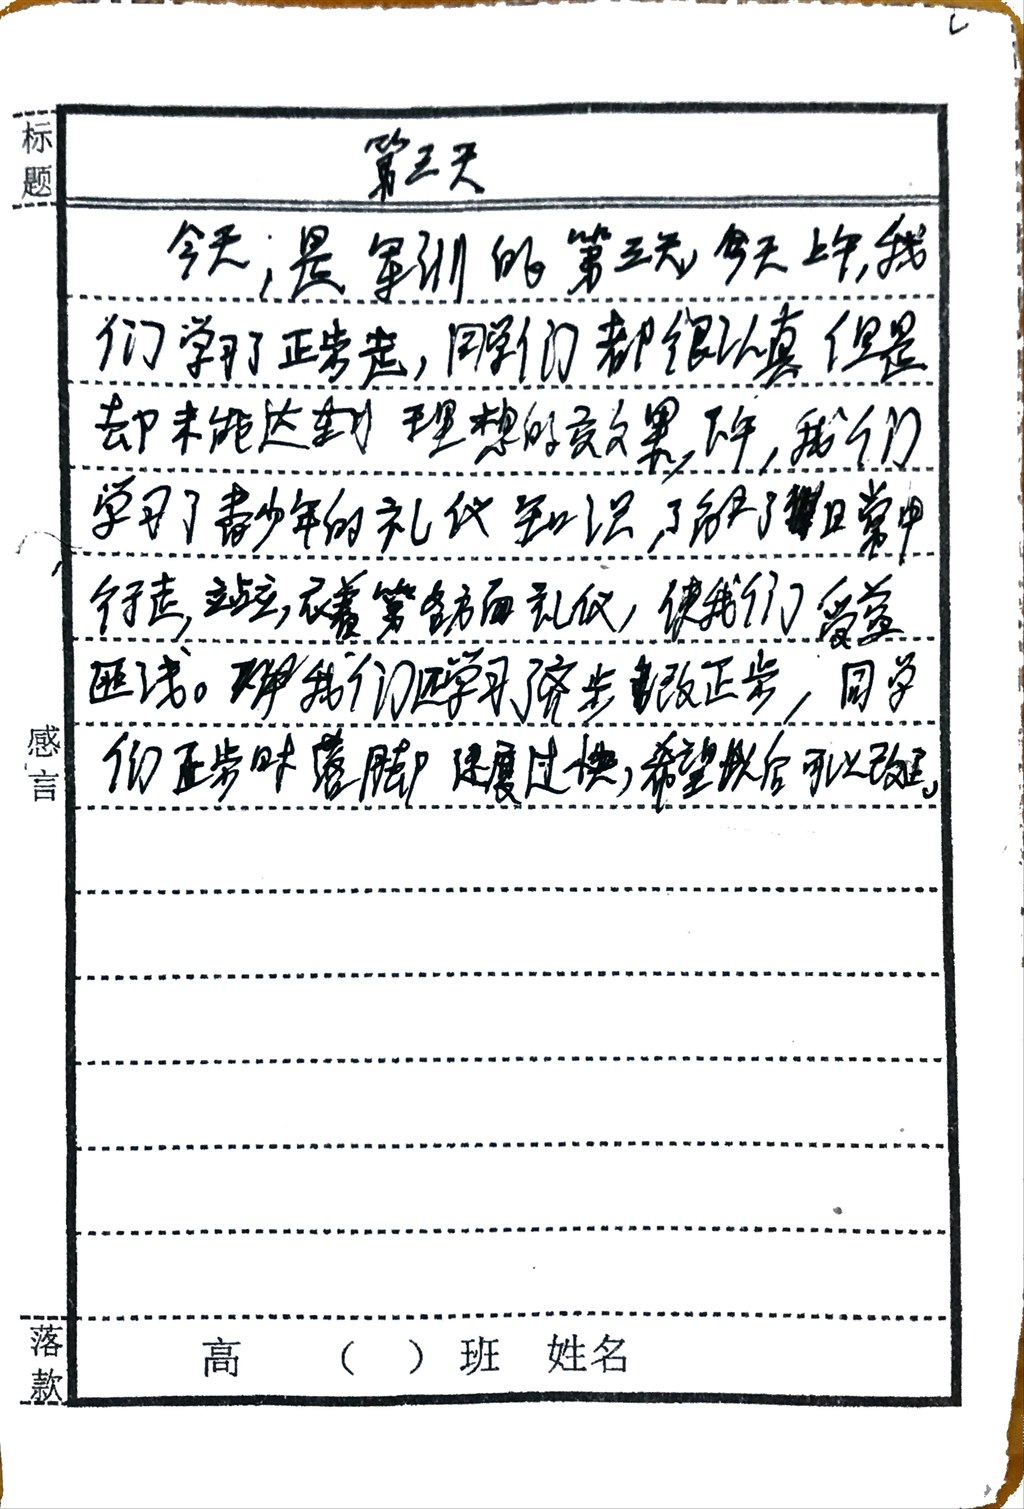 标题
第三天
今天，是军训的第三天，今天上午，我
们学习了正步走，同学们都很认真但是
却未能达到理想的效果，下午，我们
学习了青少年的礼仪知识，了解了日常中
行走，站立，衣着等各方面礼仪，使我们受益
匪浅。我们还学习了齐步改正步，同学
们正步时落脚速度过快，希望以后可以改正。
感言
落款
高 （ ）班 姓名